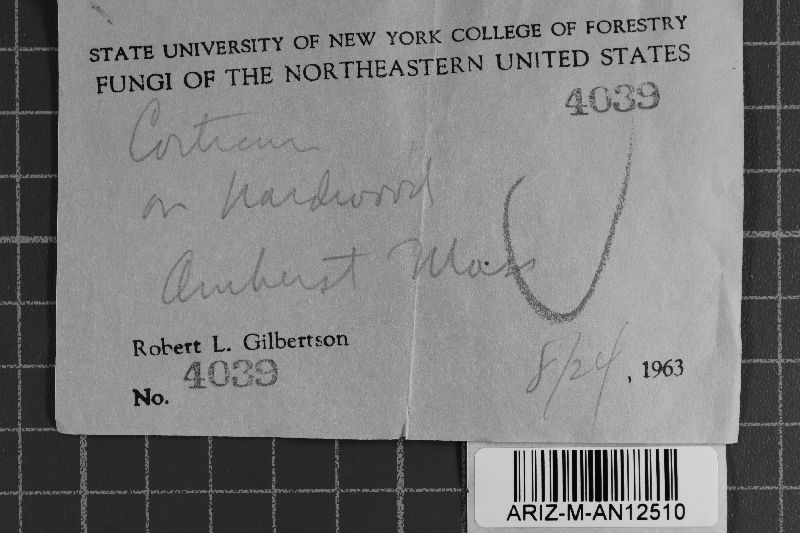 STATE UNIVERSITY OF NEW YORK COLLEGE OF FORESTRY
FUNGI OF THE NORTHEASTERN UNITED STATES
4039
Corticium
on hardwood
Amherst Mass
Robert L. Gilbertson
No. 4039
8/24, 1963
ARIZ-M-AN12510